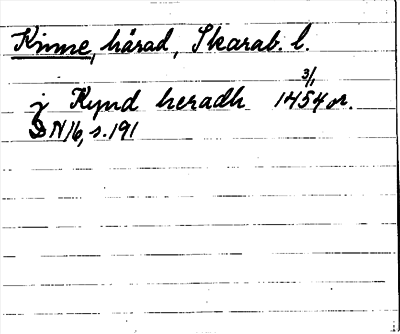 Kinne, härad, Skarab. l.
3/1
j Kynd heradh 1454 or.
DN 16, s. 191